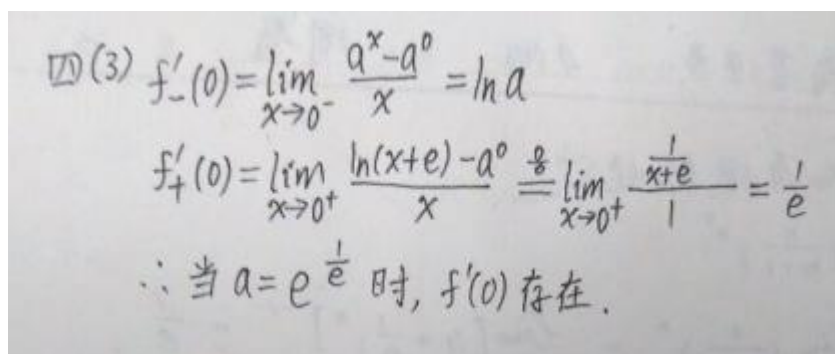 四(3) f'₋(0)=lim_{x→0⁻} (aˣ-a⁰)/x = ln a
f'₊(0)=lim_{x→0⁺} (ln(x+e)-a⁰)/x =^{0/0} lim_{x→0⁺} (1/(x+e))/1 = 1/e
∴ 当 a=e^{1/e} 时, f'(0) 存在.